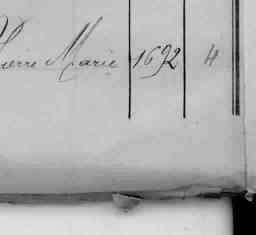 Pierre Marie 1692 4